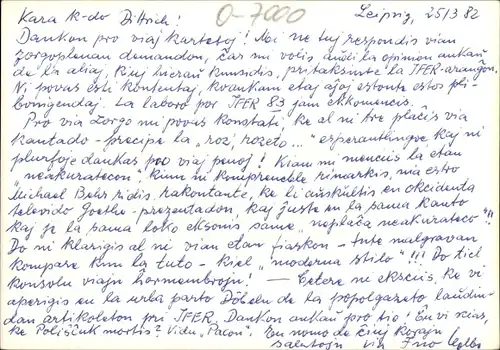 Kara k-do Dittrich! O-7000 Leipzig, 25/3 82
Dankon pro viaj kartetoj! Mi ne tuj respondis vian
zorgoplenan demandon, ĉar mi volis aŭdi la opinion ankaŭ
de la aliaj, kiuj hieraŭ kunsidis, pritaksante la IFER-aranĝon.
Ni povas esti kontentaj, kvankam etaj aĵoj estonte estos pli-
bonigendaj. La laboro por IFER 83 jam ekkomencis.
Pro via zorgo mi povas konstati, ke al ni tre plaĉis via
kantado - precipe la "roz', rozeto..." esperantlingve kaj ni
plurfoje dankas pro viaj penoj! Kiam mi menciis la etan
"neakuratecon" kiun ni kompreneble rimarkis, nia estro
Michael Behr ridis, rakontante, ke li aŭskultis en okcidenta
televido Goethe-prezentadon, kaj ĝuste en la sama kanto
kaj je la sama loko eksonis sama "neplaĉa neakurateco"!!
Do ni klarigis al ni vian etan fiaskon - tute malgravan
kompare kun la tuto - kiel "moderna stilo"!!! Do tiel
konsolu viajn ĥormembrojn! — Cetere ni eksciis, ke vi
aperigis en la urba parto Döbeln de la popolgazeto laŭdin-
dan artikoleton pri IFER. Dankon ankaŭ pro tio! Ĉu vi scias,
ke Poliŝĉuk mortis? Vidu "Pacon". En nomo de ĉiuj koraj
salutojn via